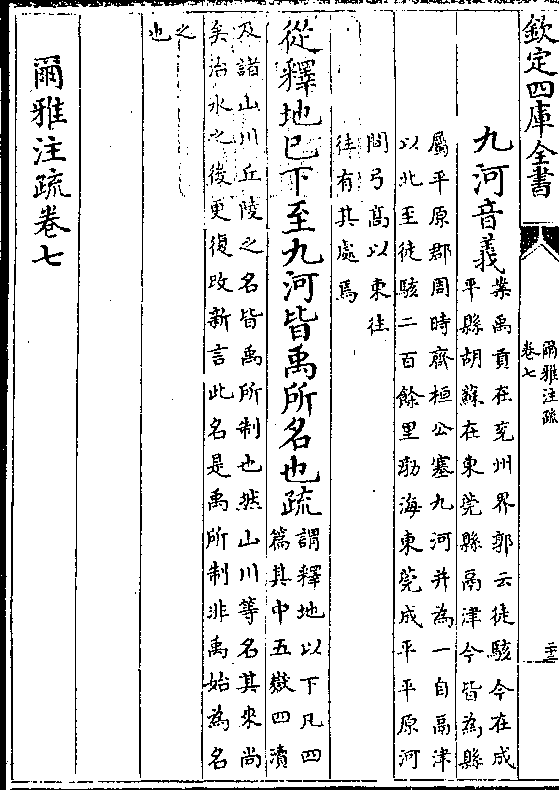 欽定四庫全書
爾雅注疏
卷七
九河音義
業禹貢在兖州界郭云徒駭今在成
平縣胡蘇在東莞縣鬲津今皆為縣
屬平原郡周時齊桓公塞九河并為一自鬲津
以北至徒駭二百餘里渤海東莞成平平原河
間弓髙以東徃
徃有其處焉
從釋地已下至九河皆禹所名也疏
謂釋地以下凡四
篇其中五嶽四瀆
及諸山川丘陵之名皆禹所制也然山川等名其來尚
矣治水之後更復改新言此名是禹所制非禹始為名
之
也
爾雅注疏卷七